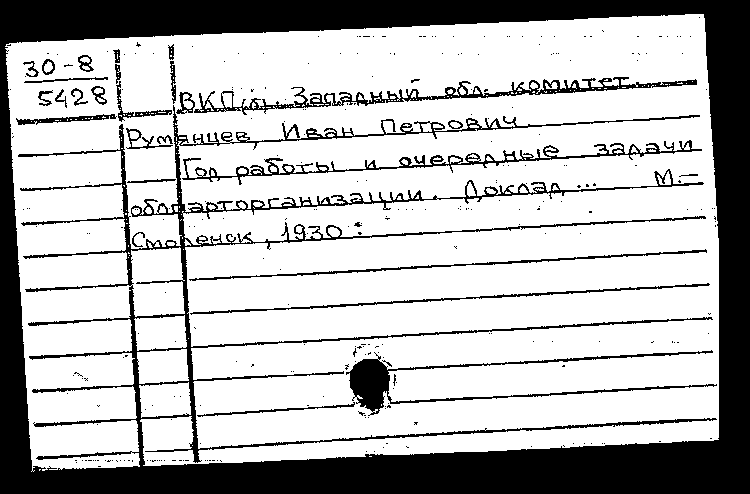 30-8
5428
ВКП(б). Западный обл. комитет.
Румянцев, Иван Петрович
Год работы и очередные задачи
облпарторганизации. Доклад... М.-
Смоленск, 1930: